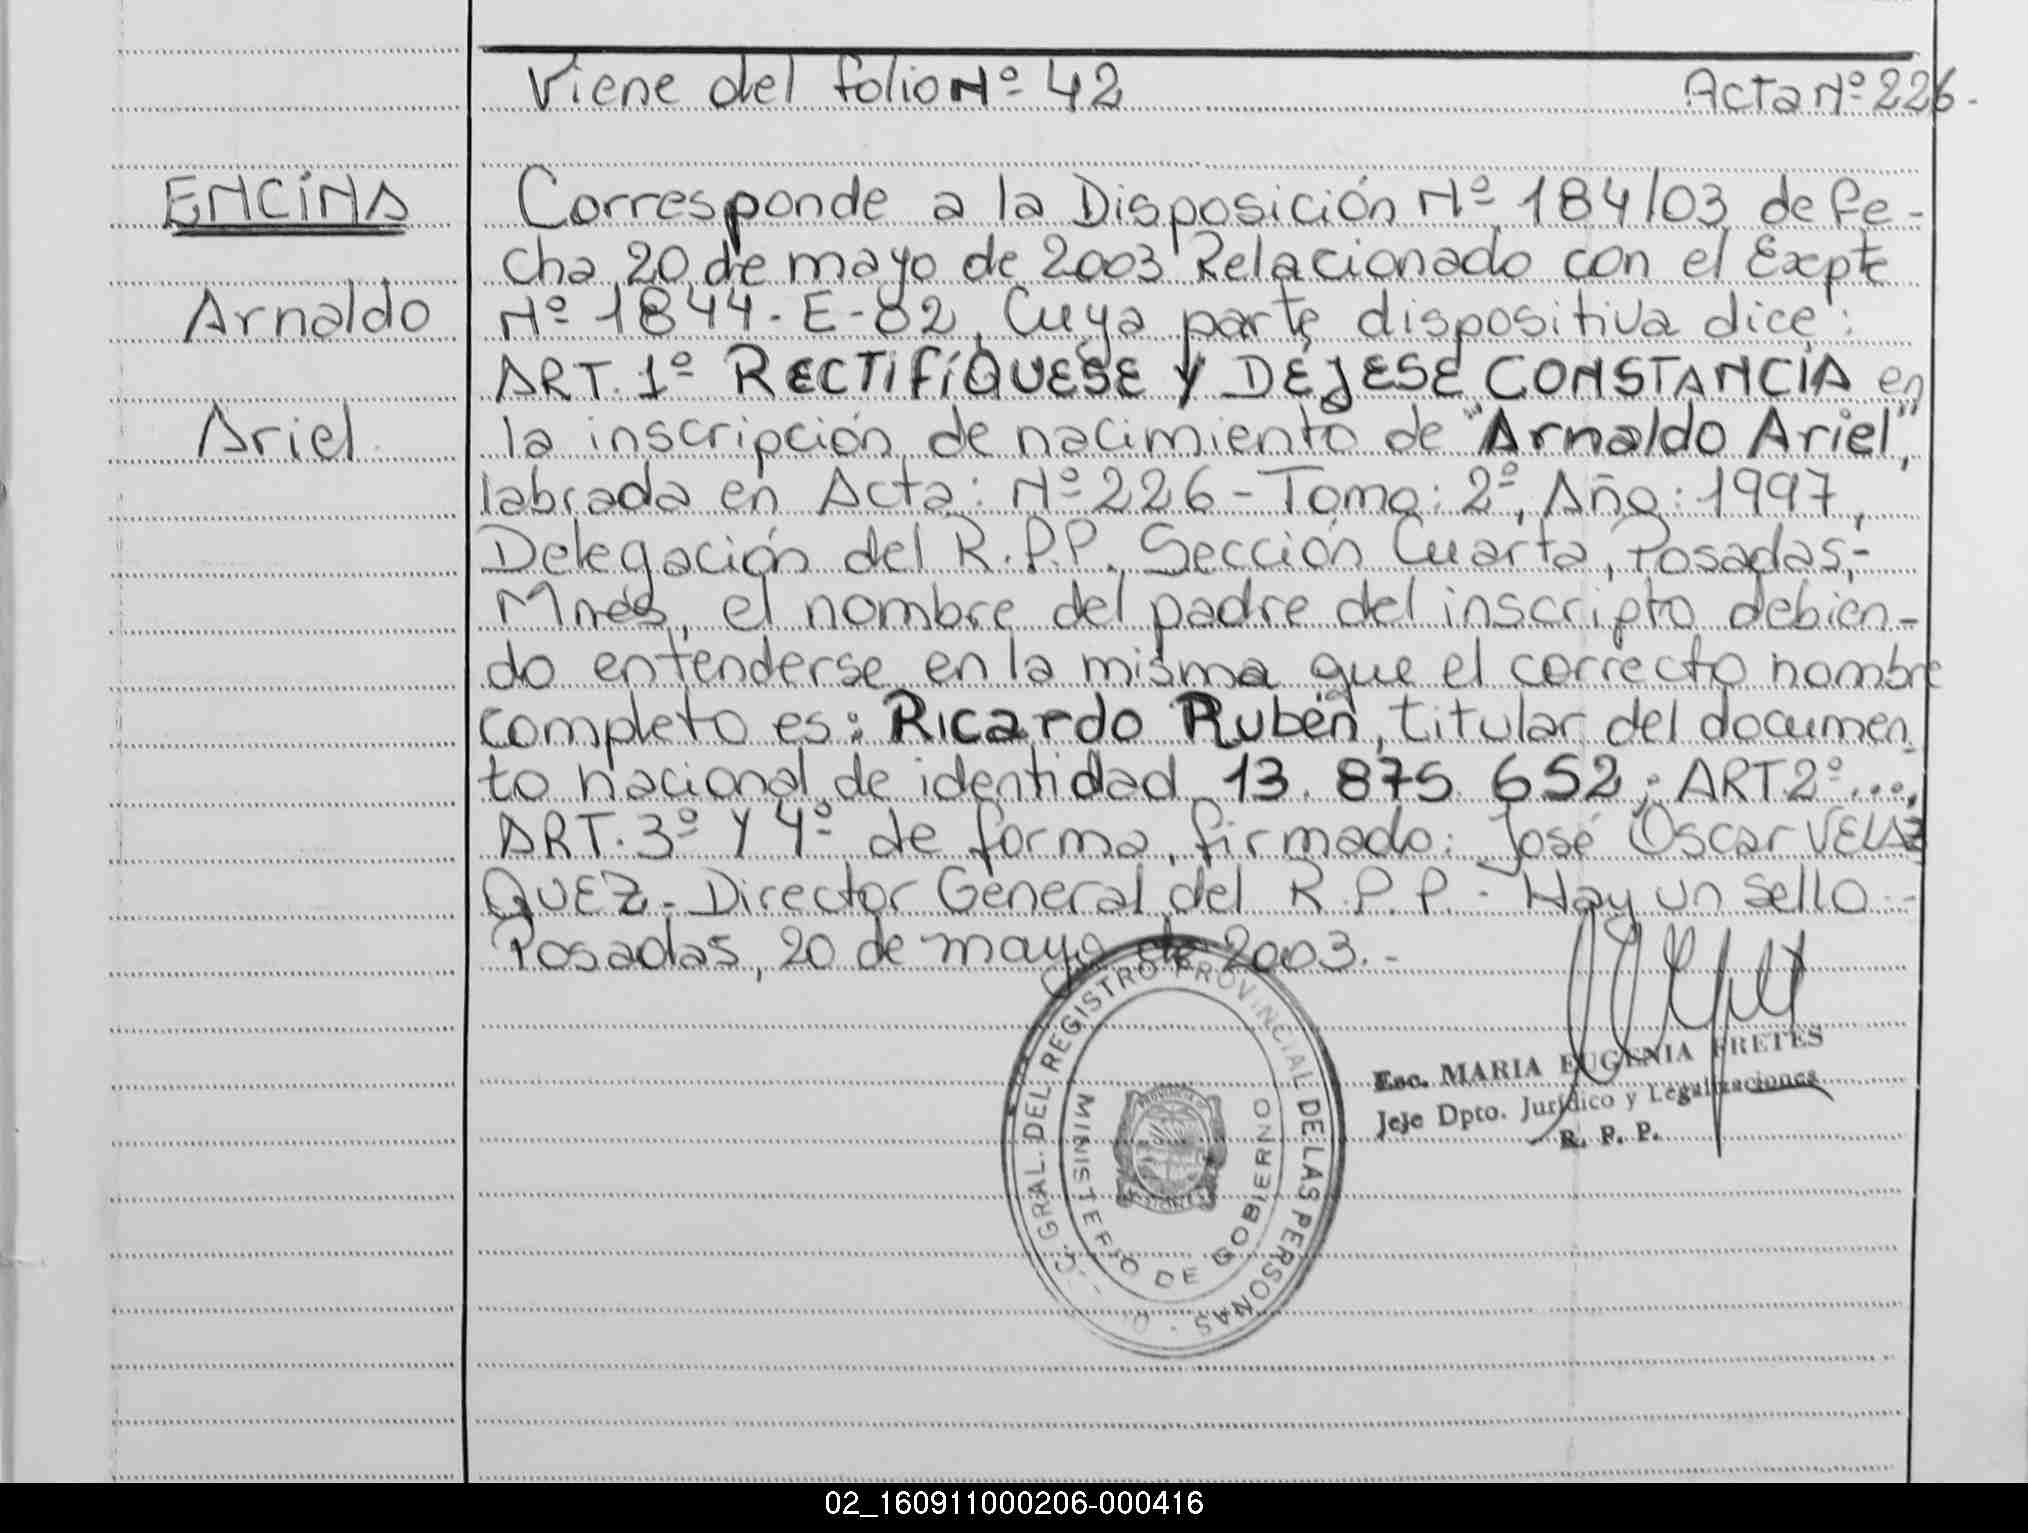 Viene del folio Nº 42 Acta Nº 226.-
ENCINA
Arnaldo
Ariel.
Corresponde a la Disposición Nº 184/03 de fe-
cha 20 de mayo de 2003 Relacionado con el Expte
Nº 1844-E-82, Cuya parte dispositiva dice:
ART. 1º RECTIFÍQUESE Y DÉJESE CONSTANCIA en
la inscripción de nacimiento de "Arnaldo Ariel",
labrada en Acta: Nº 226 - Tomo: 2º, Año: 1997,
Delegación del R.P.P. Sección Cuarta, Posadas,-
Mnes, el nombre del padre del inscripto debien-
do entenderse en la misma que el correcto nombre
completo es: Ricardo Rubén, titular del documen-
to nacional de identidad 13.875.652; ART.2º...,
ART.3º Y 4º de forma, firmado: José Oscar VELAZ
QUEZ- Director General del R.P.P.- Hay un sello.-
Posadas, 20 de mayo de 2003.-
GRAL. DEL REGISTRO PROVINCIAL DE LAS PERSONAS
MINISTERIO DE GOBIERNO
Esc. MARIA EUGENIA FRETES
Jefe Dpto. Jurídico y Legalizaciones
R. P. P.
02_160911000206-000416